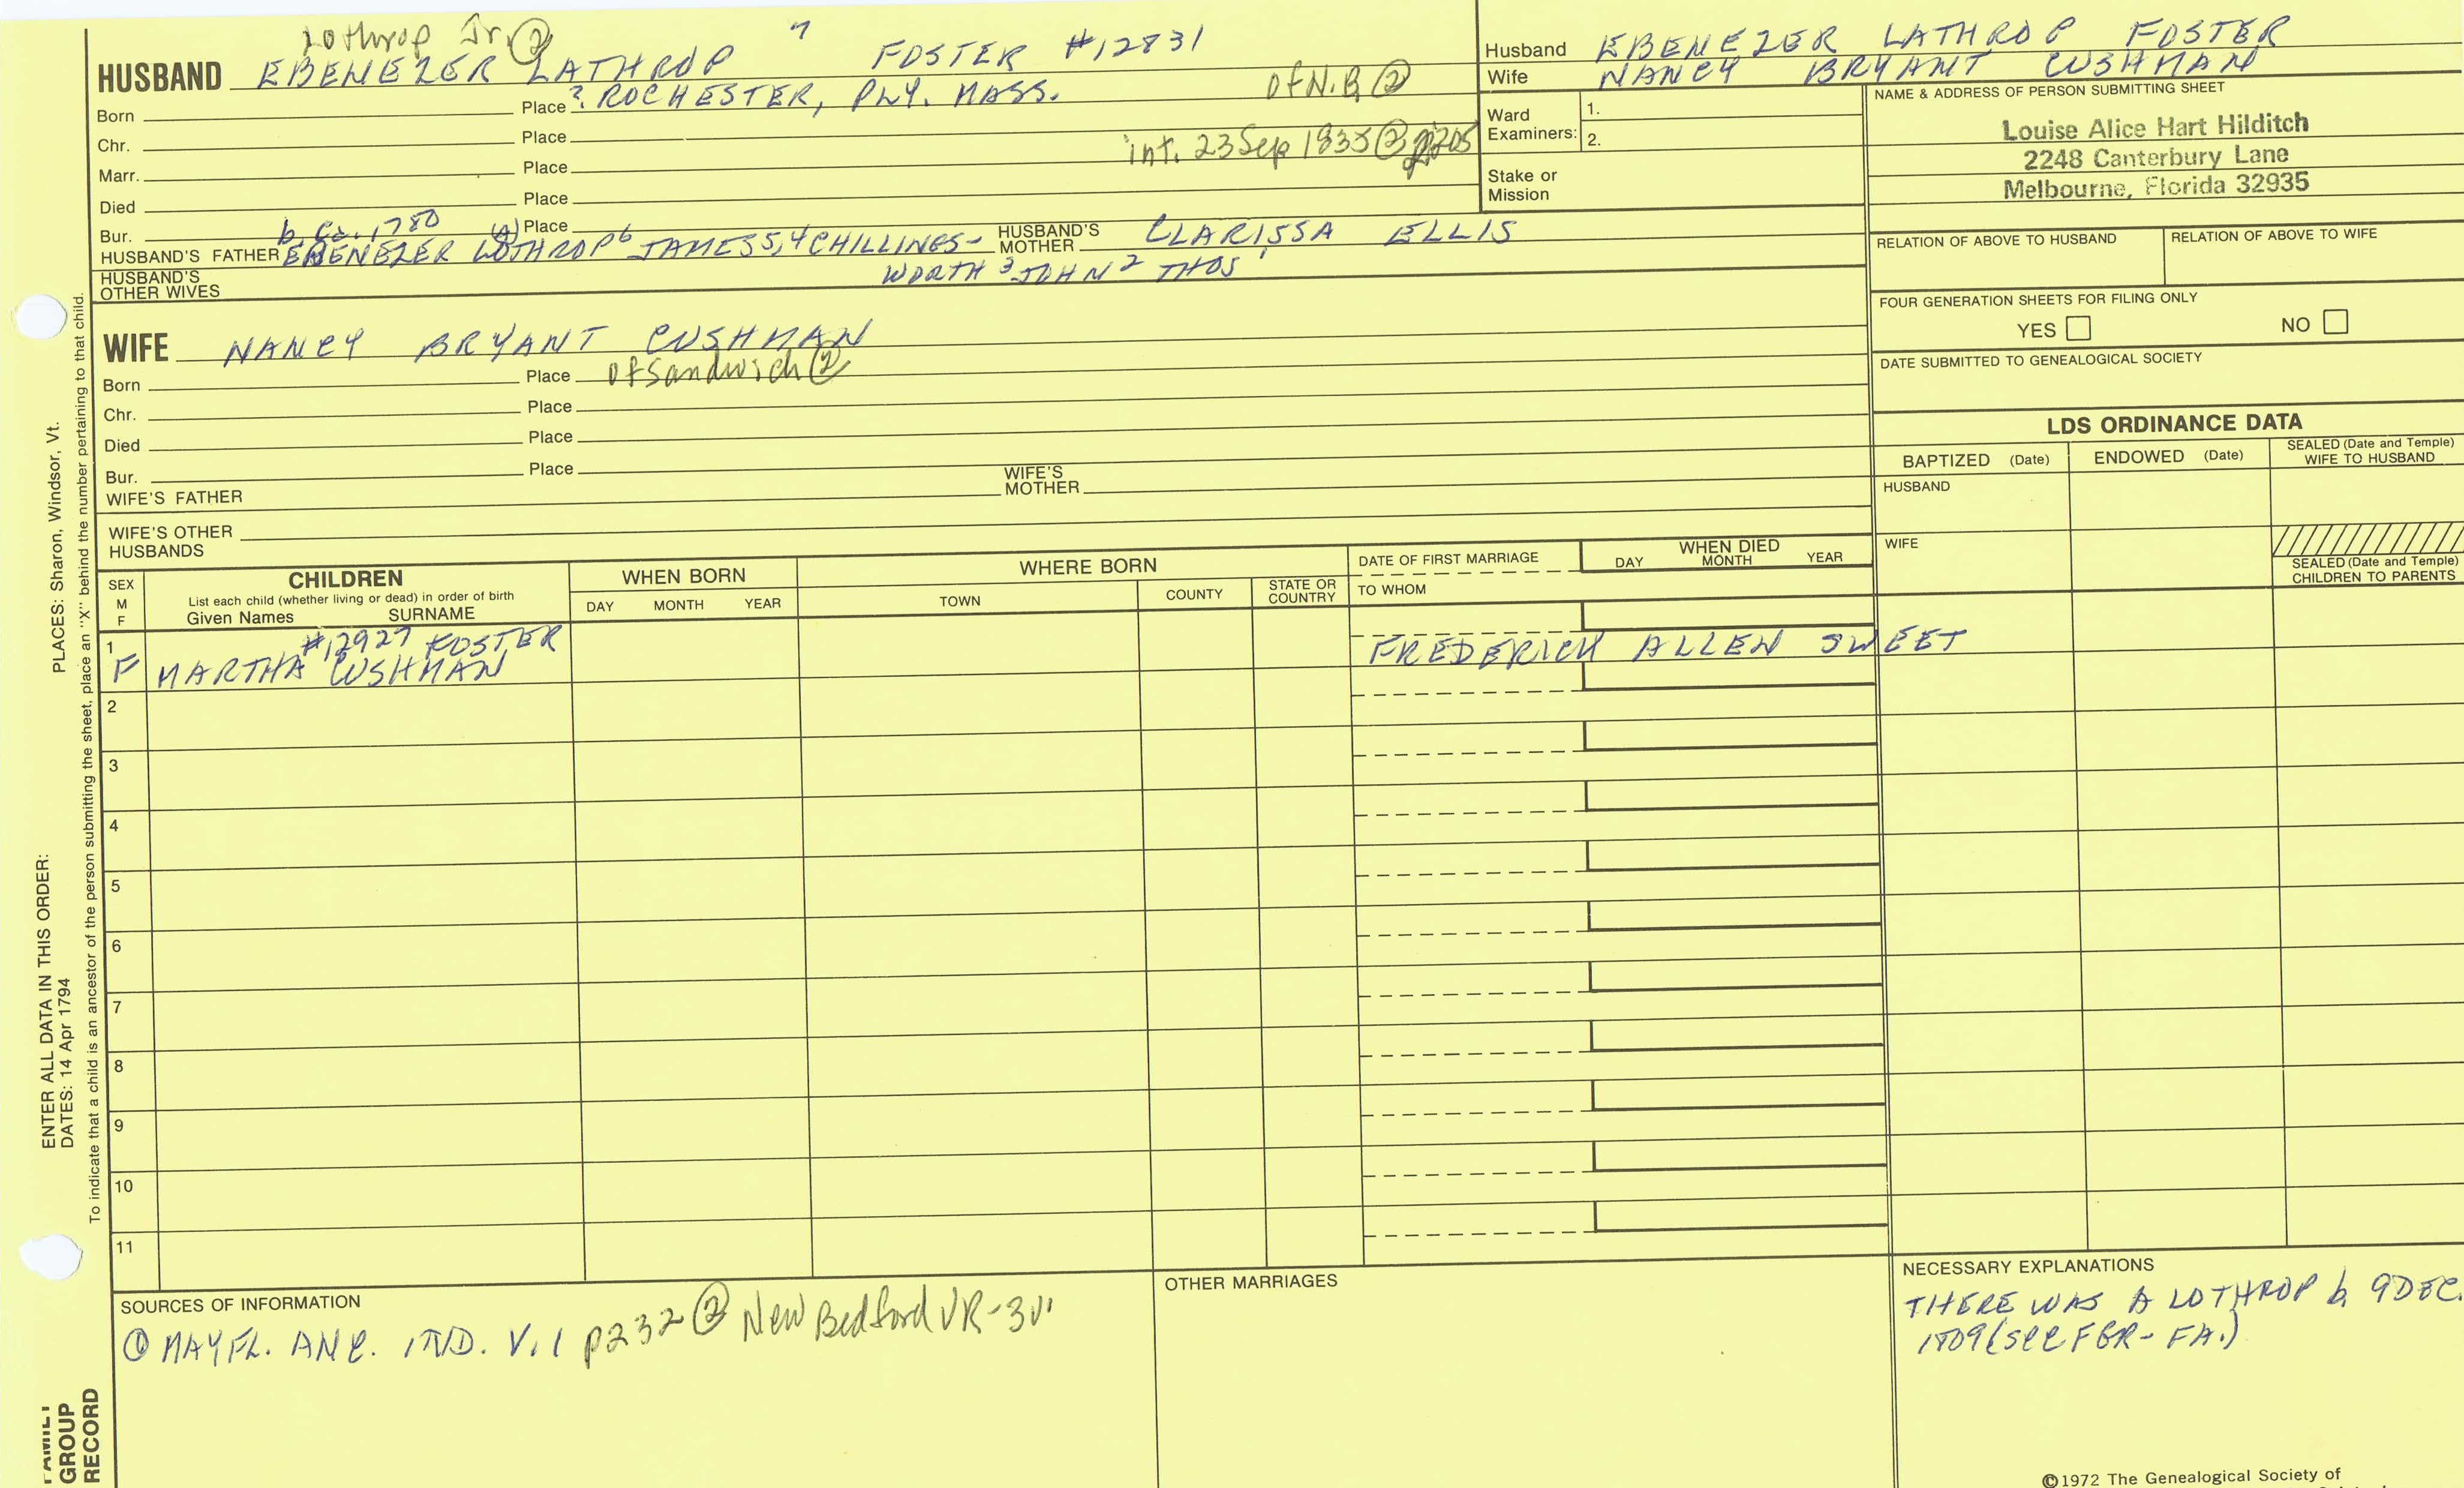 Lothrop Jr. ②
HUSBAND EBENEZER LATHROP 7 FOSTER #12831
Born Place ? ROCHESTER, PLY. MASS. of N.B ②
Chr. Place
Marr. Place int. 23 Sep 1835 ②
Died Place
Bur. Place
b. ca. 1780
HUSBAND'S FATHER EBENEZER LOTHROP 6 JAMES 5, 4 CHILLINGS- HUSBAND'S MOTHER CLARISSA ELLIS
WORTH 3 JOHN 2 THOS 1
HUSBAND'S OTHER WIVES
WIFE NANCY BRYANT CUSHMAN
Born Place of Sandwich ②
Chr. Place
Died Place
Bur. Place
WIFE'S FATHER WIFE'S MOTHER
WIFE'S OTHER HUSBANDS
Husband EBENEZER LATHROP FOSTER
Wife NANCY BRYANT CUSHMAN
Ward Examiners: 1.
2.
Stake or Mission
NAME & ADDRESS OF PERSON SUBMITTING SHEET
Louise Alice Hart Hilditch
2248 Canterbury Lane
Melbourne, Florida 32935
RELATION OF ABOVE TO HUSBAND RELATION OF ABOVE TO WIFE
FOUR GENERATION SHEETS FOR FILING ONLY
YES NO
DATE SUBMITTED TO GENEALOGICAL SOCIETY
LDS ORDINANCE DATA
BAPTIZED (Date) ENDOWED (Date) SEALED (Date and Temple) WIFE TO HUSBAND
HUSBAND
WIFE
SEALED (Date and Temple) CHILDREN TO PARENTS
SEX M F
CHILDREN
List each child (whether living or dead) in order of birth
Given Names SURNAME
WHEN BORN
DAY MONTH YEAR
WHERE BORN
TOWN COUNTY STATE OR COUNTRY
DATE OF FIRST MARRIAGE
TO WHOM
WHEN DIED
DAY MONTH YEAR
1 #12927 FOSTER
F MARTHA CUSHMAN FREDERICK ALLEN SWEET
2
3
4
5
6
7
8
9
10
11
SOURCES OF INFORMATION
① MAYFL. ANC. IND. V.1 p232 ② New Bedford VR-3v
OTHER MARRIAGES
NECESSARY EXPLANATIONS
THERE WAS A LOTHROP b. 9 DEC.
1809 (see FGR-FA.)
©1972 The Genealogical Society of
ENTER ALL DATA IN THIS ORDER:
DATES: 14 Apr 1794
PLACES: Sharon, Windsor, Vt.
To indicate that a child is an ancestor of the person submitting the sheet, place an "X" behind the number pertaining to that child.
FAMILY
GROUP
RECORD